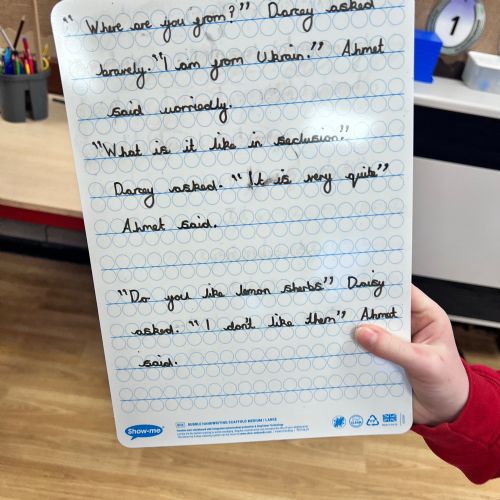 "Where are you from?" Darcey asked
bravely. "I am from Ukrain." Ahmet
said worriedly.
"What is it like in seclusion?"
Darcey asked. "It is very quite"
Ahmet said.
"Do you like lemon sherbs" Daisy
asked. "I don't like them" Ahmet
said.
Show-me
BUBBLE HANDWRITING SCAFFOLD MEDIUM / LARGE
1